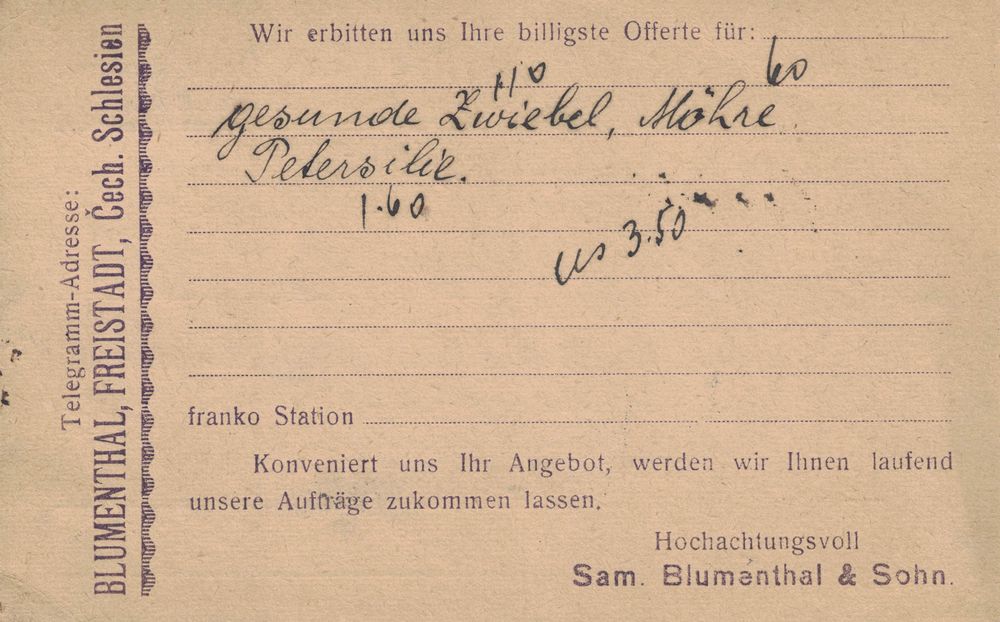 Telegramm-Adresse:
BLUMENTHAL, FREISTADT, Čech. Schlesien
Wir erbitten uns Ihre billigste Offerte für:
110 60
gesunde Zwiebel, Möhre
Petersilie.
1.60
3.50
franko Station
Konveniert uns Ihr Angebot, werden wir Ihnen laufend
unsere Aufträge zukommen lassen.
Hochachtungsvoll
Sam. Blumenthal & Sohn.